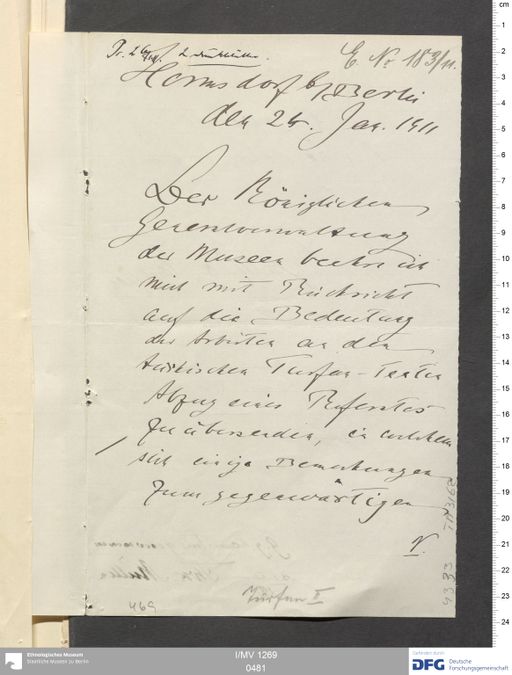 E. No 183/11.
Hermsdorf b/Berlin
den 26. Jan. 1911
Der Königlichen
Generalverwaltung
der Museen beehre ich
mich mit Rücksicht
auf die Bedeutung
der Arbeiten an den
türkischen Turfan-Texten
Abzug eines Referates
zu übersenden, in welchem
sich einige Bemerkungen
zum gegenwärtigen
V.
Turfan I
469
Ethnologisches Museum
Staatliche Museen zu Berlin
I/MV 1269
0481
DFG
Gefördert durch
Deutsche
Forschungsgemeinschaft
cm
1
2
3
4
5
6
7
8
9
10
11
12
13
14
15
16
17
18
19
20
21
22
23
24